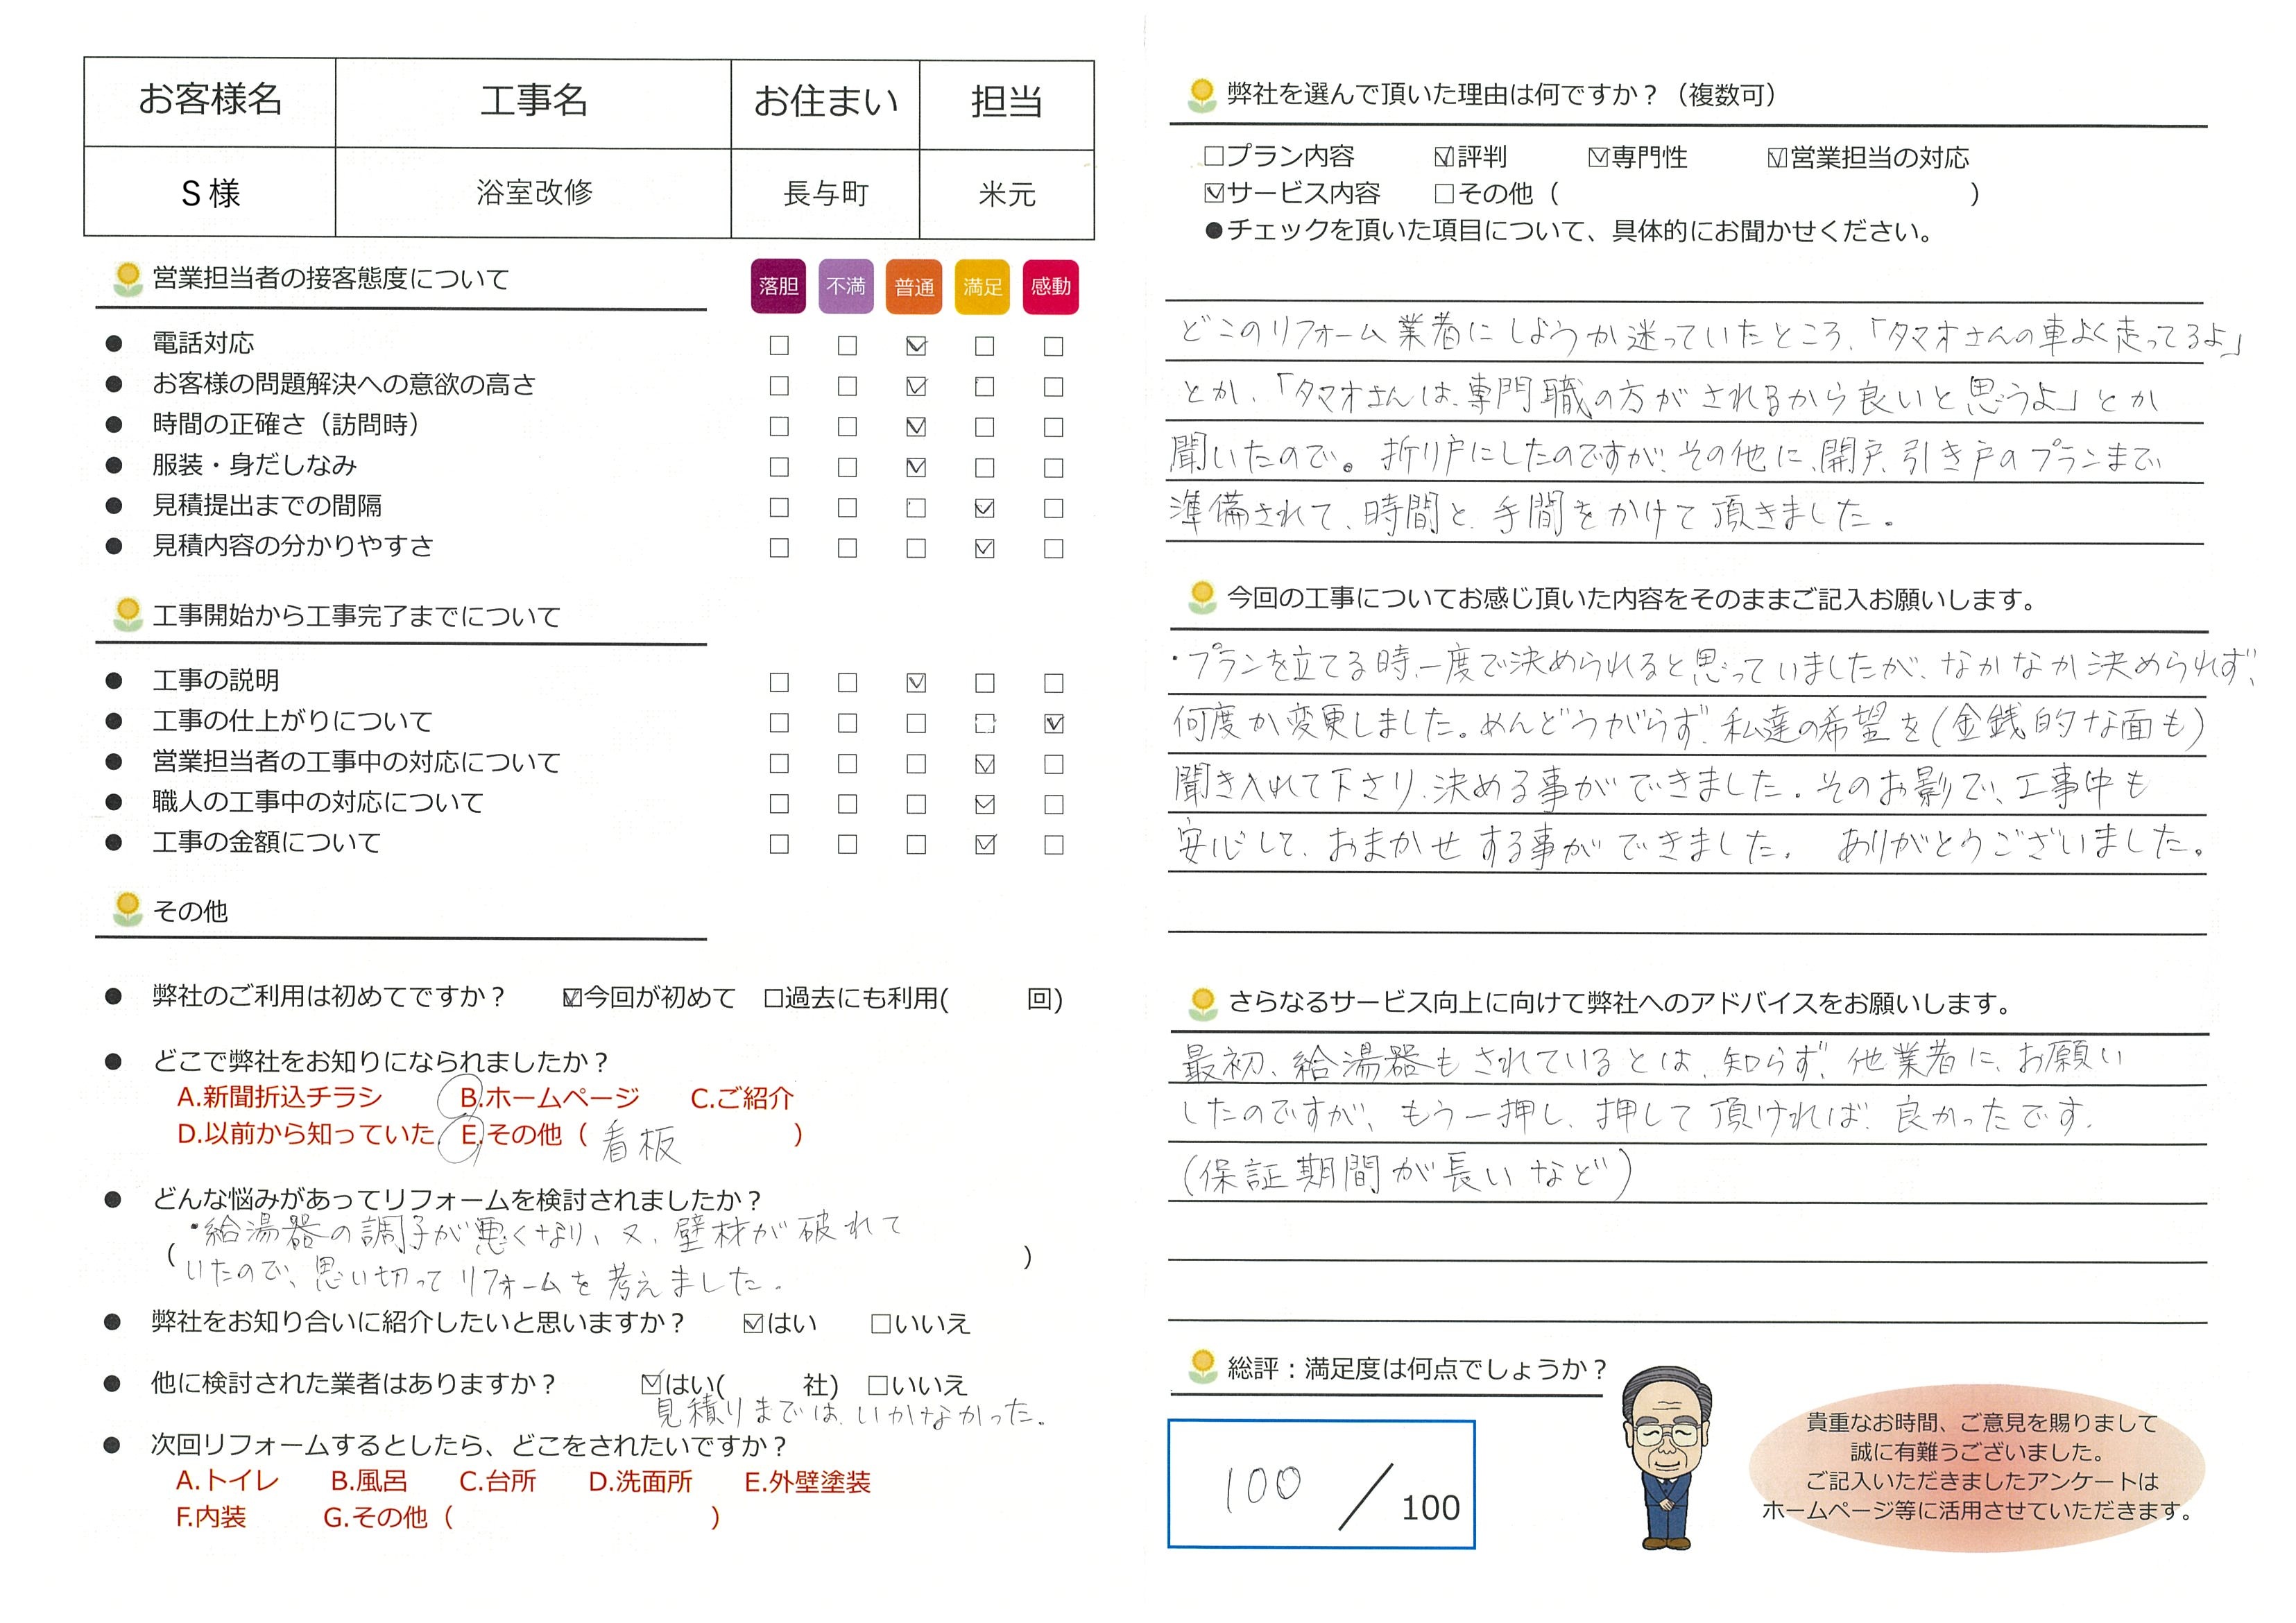 お客様名 工事名 お住まい 担当
S様 浴室改修 長与町 米元
営業担当者の接客態度について 落胆 不満 普通 満足 感動
● 電話対応 □ □ ☑ □ □
● お客様の問題解決への意欲の高さ □ □ ☑ □ □
● 時間の正確さ（訪問時） □ □ ☑ □ □
● 服装・身だしなみ □ □ ☑ □ □
● 見積提出までの間隔 □ □ □ ☑ □
● 見積内容の分かりやすさ □ □ □ ☑ □
工事開始から工事完了までについて
● 工事の説明 □ □ ☑ □ □
● 工事の仕上がりについて □ □ □ □ ☑
● 営業担当者の工事中の対応について □ □ □ ☑ □
● 職人の工事中の対応について □ □ □ ☑ □
● 工事の金額について □ □ □ ☑ □
その他
● 弊社のご利用は初めてですか？ ☑今回が初めて □過去にも利用( 回)
● どこで弊社をお知りになられましたか？
A.新聞折込チラシ B.ホームページ C.ご紹介
D.以前から知っていた E.その他（ 看板 ）
● どんな悩みがあってリフォームを検討されましたか？
（・給湯器の調子が悪くなり、又、壁材が破れて
いたので、思い切ってリフォームを考えました。）
● 弊社をお知り合いに紹介したいと思いますか？ ☑はい □いいえ
● 他に検討された業者はありますか？ ☑はい( 社) □いいえ
見積りまでは、いかなかった。
● 次回リフォームするとしたら、どこをされたいですか？
A.トイレ B.風呂 C.台所 D.洗面所 E.外壁塗装
F.内装 G.その他（ ）
弊社を選んで頂いた理由は何ですか？（複数可）
□プラン内容 ☑評判 ☑専門性 ☑営業担当の対応
☑サービス内容 □その他（ ）
●チェックを頂いた項目について、具体的にお聞かせください。
どこのリフォーム業者にしようか迷っていたところ、「タマオさんの車よく走ってるよ」
とか、「タマオさんは、専門職の方がされるから良いと思うよ」とか
聞いたので。折り戸にしたのですが、その他に、開戸、引き戸のプランまで
準備されて、時間と、手間をかけて頂きました。
今回の工事についてお感じ頂いた内容をそのままご記入お願いします。
・プランを立てる時、一度で決められると思っていましたが、なかなか決められず、
何度か変更しました。めんどうがらず、私達の希望を（金銭的な面も）
聞き入れて下さり、決める事ができました。そのお影で、工事中も
安心して、おまかせする事ができました。 ありがとうございました。
さらなるサービス向上に向けて弊社へのアドバイスをお願いします。
最初、給湯器もされているとは、知らず、他業者に、お願い
したのですが、もう一押し、押して頂ければ、良かったです。
（保証期間が長いなど）
総評：満足度は何点でしょうか？
100 ／ 100
貴重なお時間、ご意見を賜りまして
誠に有難うございました。
ご記入いただきましたアンケートは
ホームページ等に活用させていただきます。